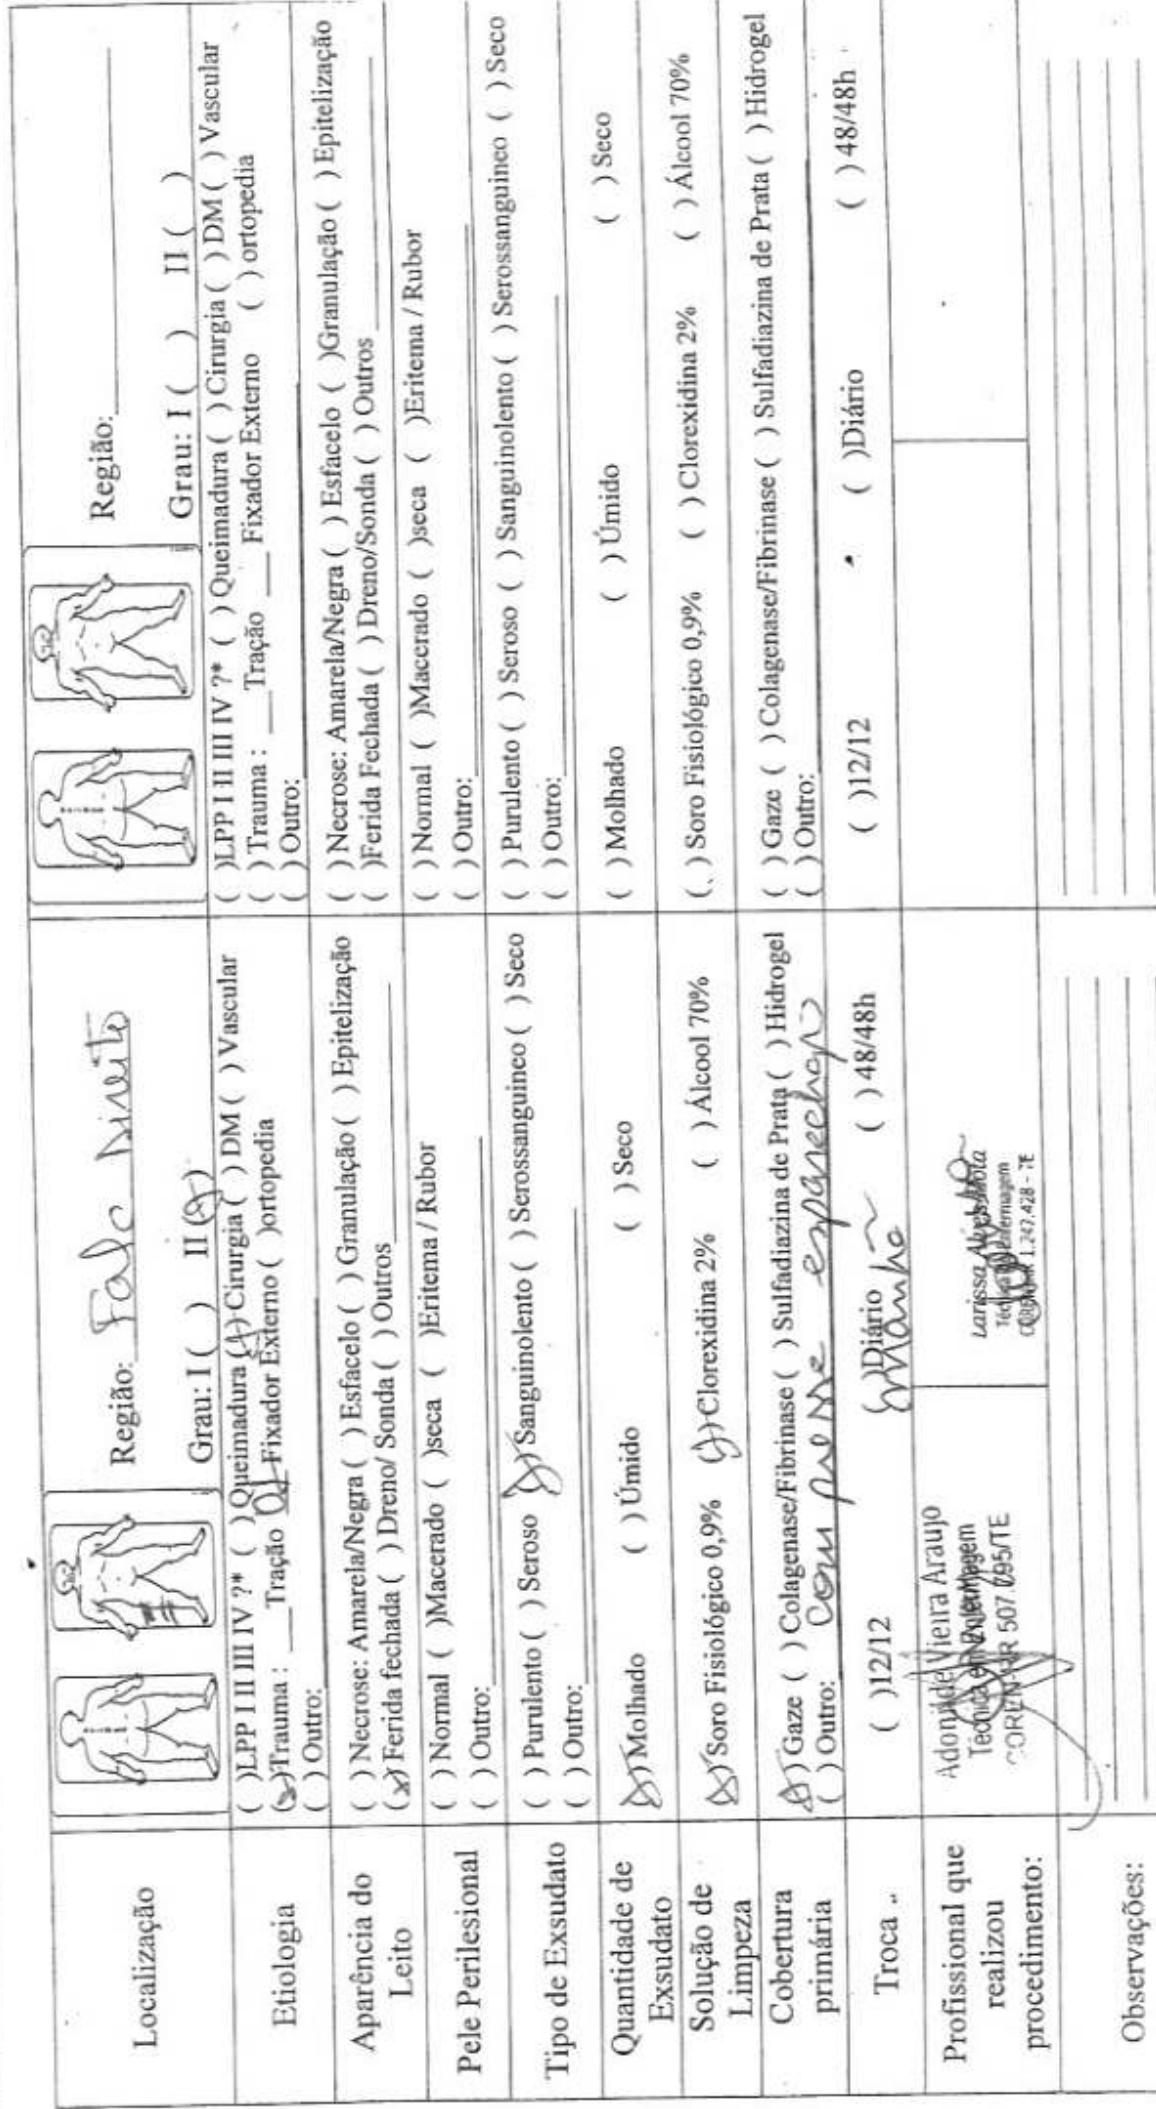 Localização
Região: Falc Direito
Grau: I ( ) II (x)
Região:
Grau: I ( ) II ( )
Etiologia
( )LPP I II III IV ?* ( ) Queimadura (x) Cirurgia ( ) DM ( ) Vascular
(x)Trauma : ___Tração (x) Fixador Externo ( )ortopedia
( ) Outro:
( )LPP I II III IV ?* ( ) Queimadura ( ) Cirurgia ( ) DM ( ) Vascular
( ) Trauma : ___Tração ___ Fixador Externo ( ) ortopedia
( ) Outro:
Aparência do
Leito
( ) Necrose: Amarela/Negra ( ) Esfacelo ( ) Granulação ( ) Epitelização
(x) Ferida fechada ( ) Dreno/ Sonda ( ) Outros
( ) Necrose: Amarela/Negra ( ) Esfacelo ( )Granulação ( ) Epitelização
( )Ferida Fechada ( ) Dreno/Sonda ( ) Outros
Pele Perilesional
( ) Normal ( )Macerado ( )seca ( )Eritema / Rubor
( ) Outro:
( ) Normal ( )Macerado ( )seca ( )Eritema / Rubor
( ) Outro:
Tipo de Exsudato
( ) Purulento ( ) Seroso (x)Sanguinolento ( ) Serossanguineo ( ) Seco
( ) Outro:
( ) Purulento ( ) Seroso ( ) Sanguinolento ( ) Serossanguineo ( ) Seco
( ) Outro:
Quantidade de
Exsudato
(x)Molhado ( ) Úmido ( ) Seco
( ) Molhado ( ) Úmido ( ) Seco
Solução de
Limpeza
(x)Soro Fisiológico 0,9% (x)Clorexidina 2% ( ) Álcool 70%
( ) Soro Fisiológico 0,9% ( ) Clorexidina 2% ( ) Álcool 70%
Cobertura
primária
(x) Gaze ( ) Colagenase/Fibrinase ( ) Sulfadiazina de Prata ( ) Hidrogel
( ) Outro: Compresse esparechap
( ) Gaze ( ) Colagenase/Fibrinase ( ) Sulfadiazina de Prata ( ) Hidrogel
( ) Outro:
Troca
( )12/12 (x)Diário ( ) 48/48h
manhã
( )12/12 ( )Diário ( ) 48/48h
Profissional que
realizou
procedimento:
Adonilde Vieira Araujo
Técnica em Enfermagem
COREN-RR 507.095/TE
Larissa Mota
Técnica Enfermagem
COREN-RR 1.247.428 - TE
Observações: